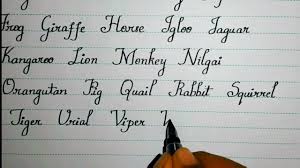 Frog Giraffe Horse Igloo Jaguar
Kangaroo Lion Monkey Nilgai
Orangutan Pig Quail Rabbit Squirrel
Tiger Urial Viper